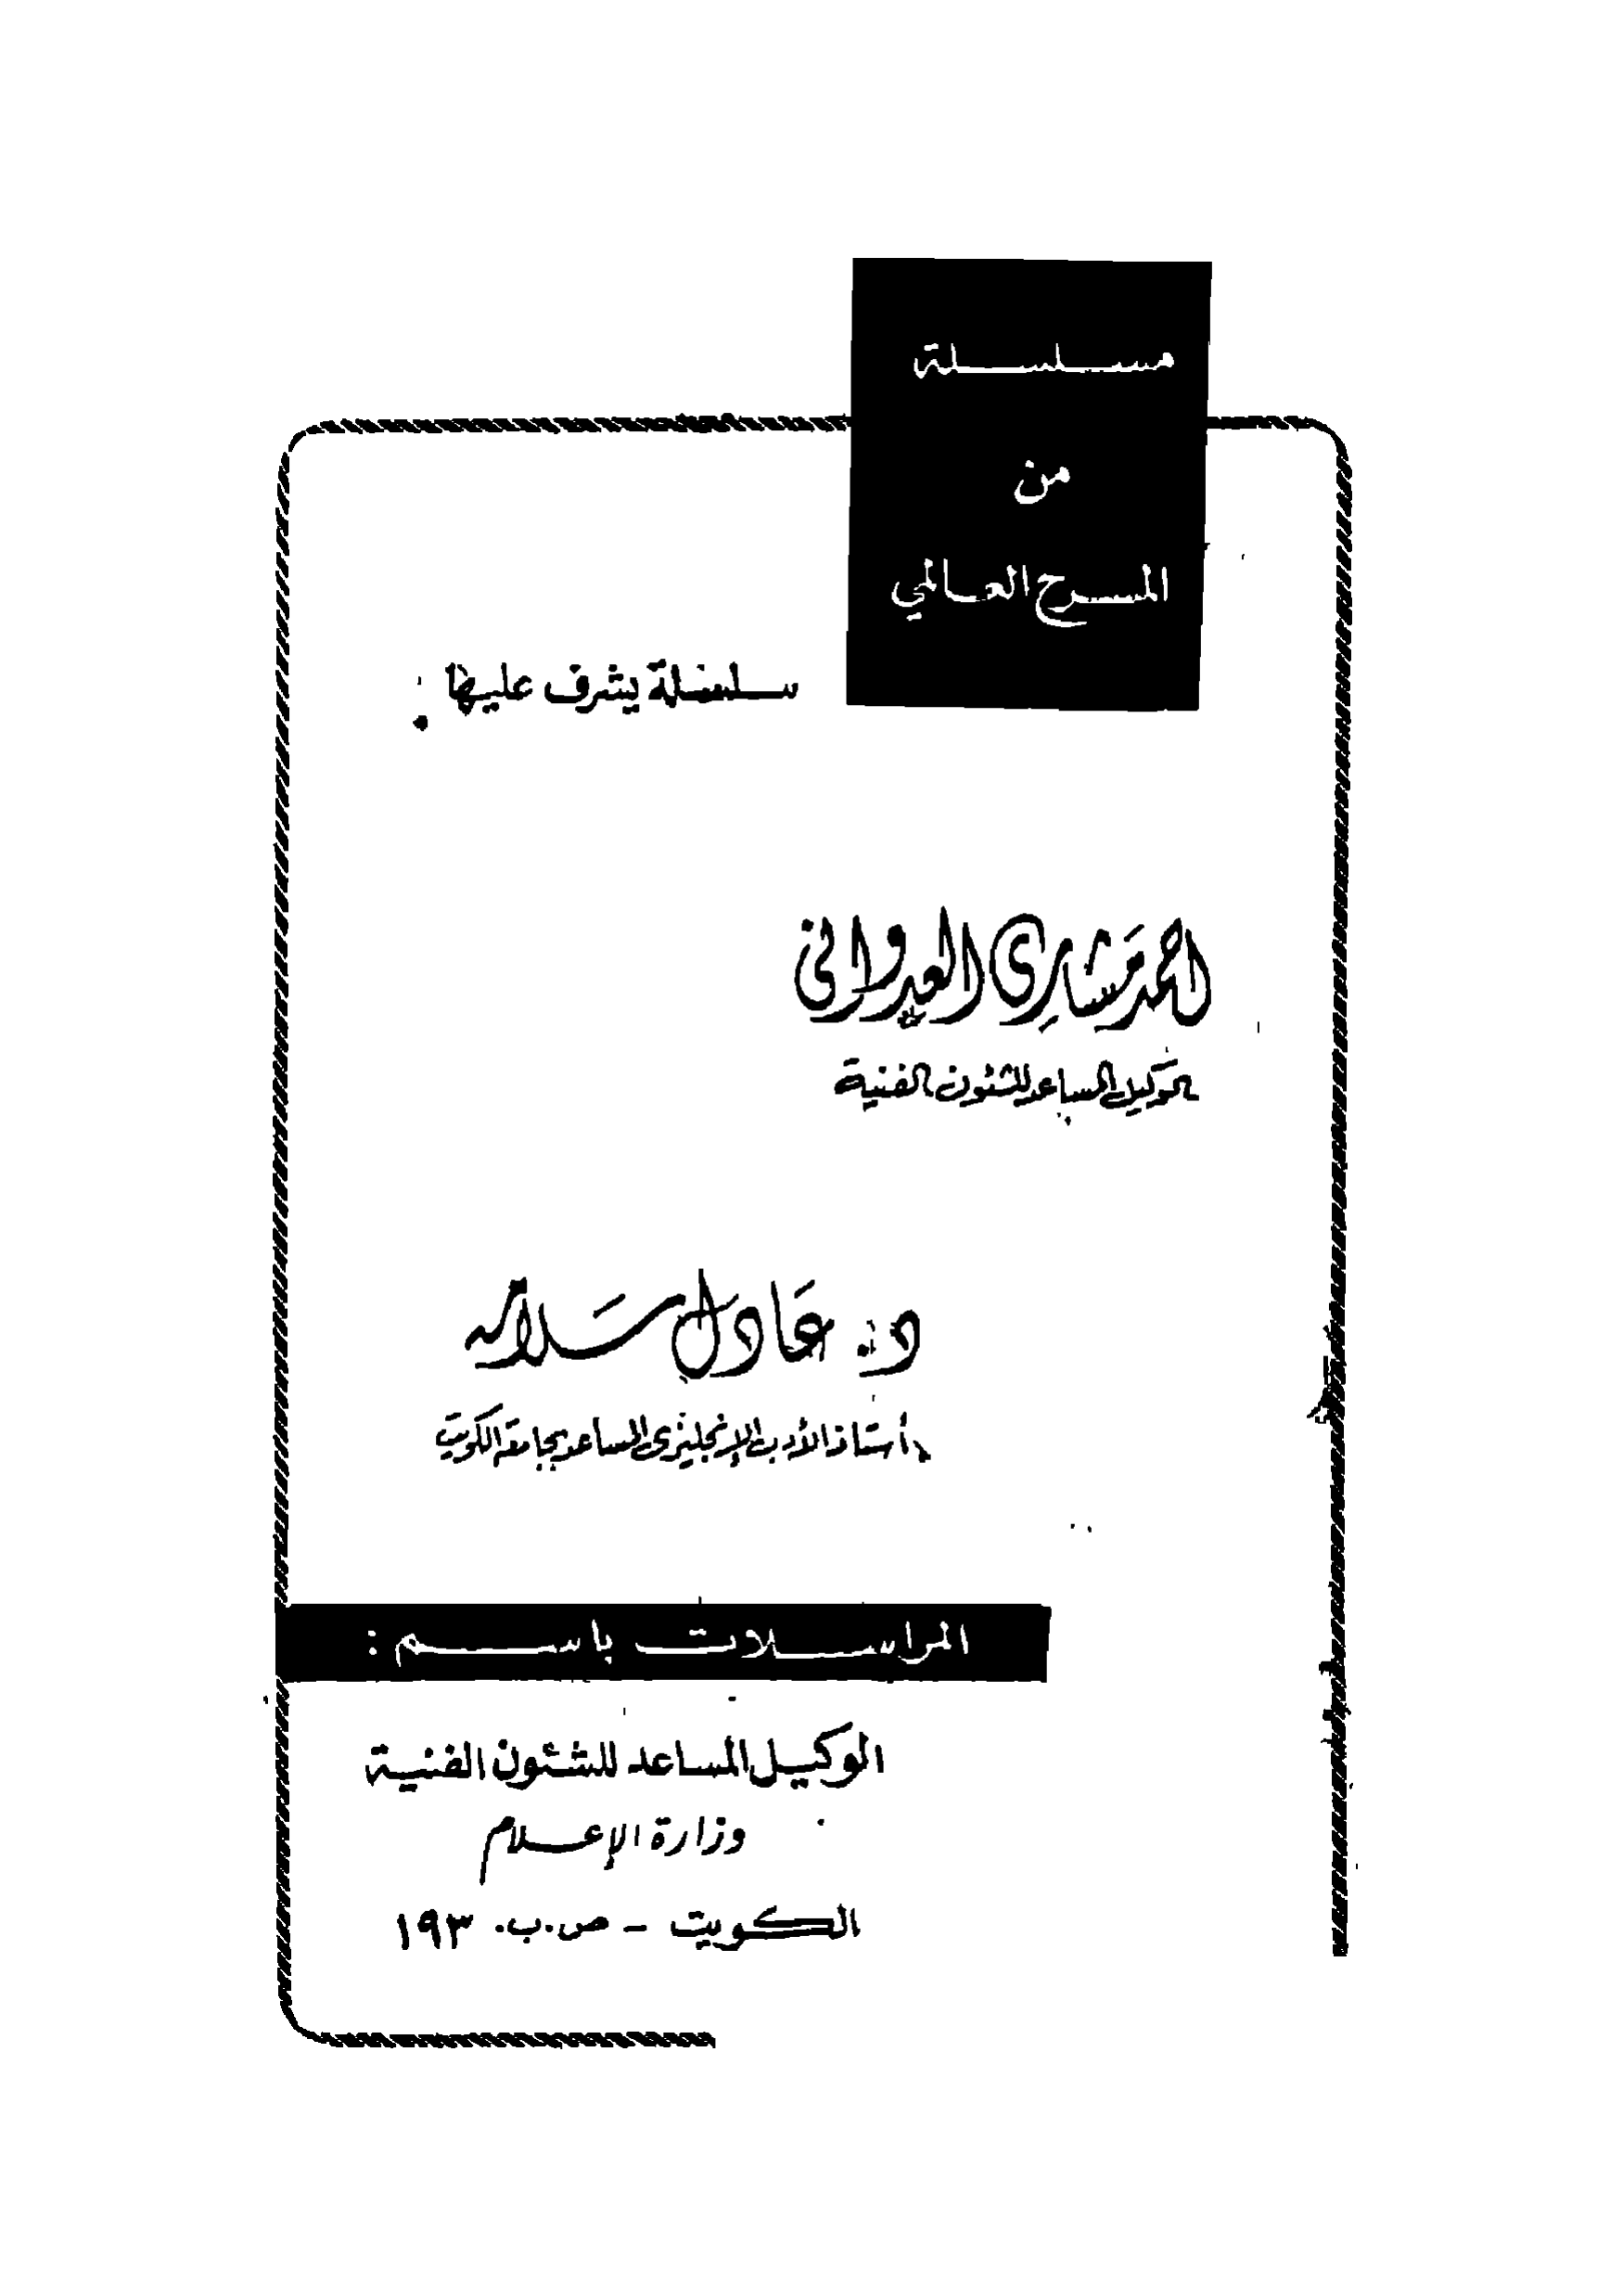 مسلسلة
من
المسرح العالمي
سلسلة يشرف عليها :
احمد مشاري العدواني
الوكيل المساعد للشئون الفنية
د. عادل سلامه
أستاذ الأدب الإنجليزي المساعد بجامعة الكويت
المراسلات باسم :
الوكيل المساعد للشئون الفنية
وزارة الإعلام
الكويت - ص.ب. ١٩٣